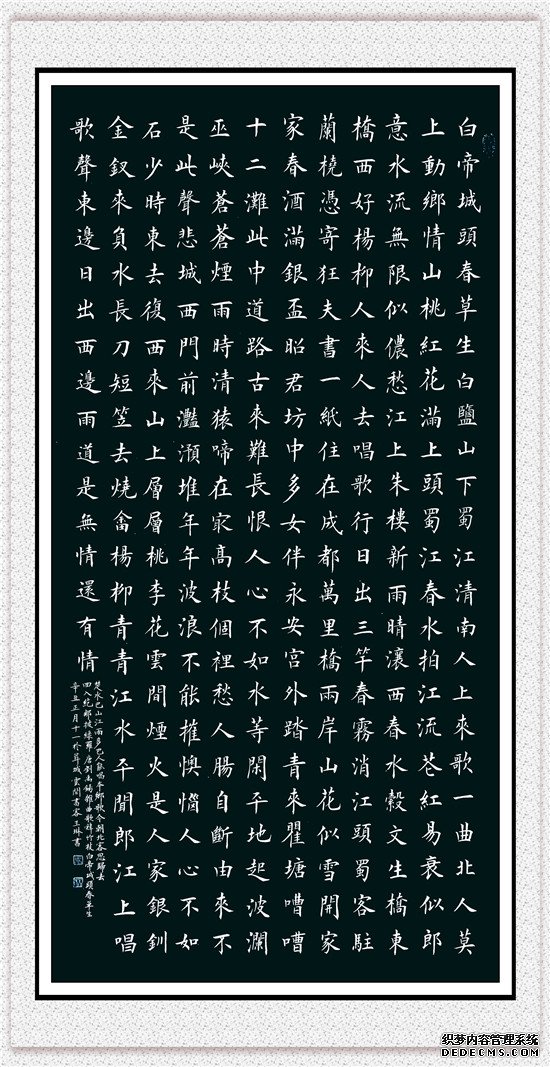 白帝城頭春草生白鹽山下蜀江清南人上來歌一曲北人莫
上動鄉情山桃紅花滿上頭蜀江春水拍江流花紅易衰似郎
意水流無限似儂愁江上朱樓新雨晴瀼西春水縠文生橋東
橋西好楊柳人來人去唱歌行日出三竿春霧消江頭蜀客駐
蘭橈憑寄狂夫書一紙住在成都萬里橋兩岸山花似雪開家
家春酒滿銀盃昭君坊中多女伴永安宮外踏青來瞿塘嘈嘈
十二灘此中道路古來難長恨人心不如水等閑平地起波瀾
巫峽蒼蒼煙雨時清猿啼在最高枝個裡愁人腸自斷由來不
是此聲悲城西門前灩澦堆年年波浪不能摧懊惱人心不如
石少時東去復西來山上層層桃李花雲間煙火是人家銀釧
金釵來負水長刀短笠去燒畬楊柳青青江水平聞郎江上唱
歌聲東邊日出西邊雨道是無情還有情
楚水巴山江雨多巴人能唱本鄉歌今朝北客思歸去
回入紇那披綠羅唐劉禹錫雜曲歌辭竹枝白帝城頭春草生
辛丑正月十一於城雲間書客王琳書
织梦内容管理系统
DEDECMS.COM